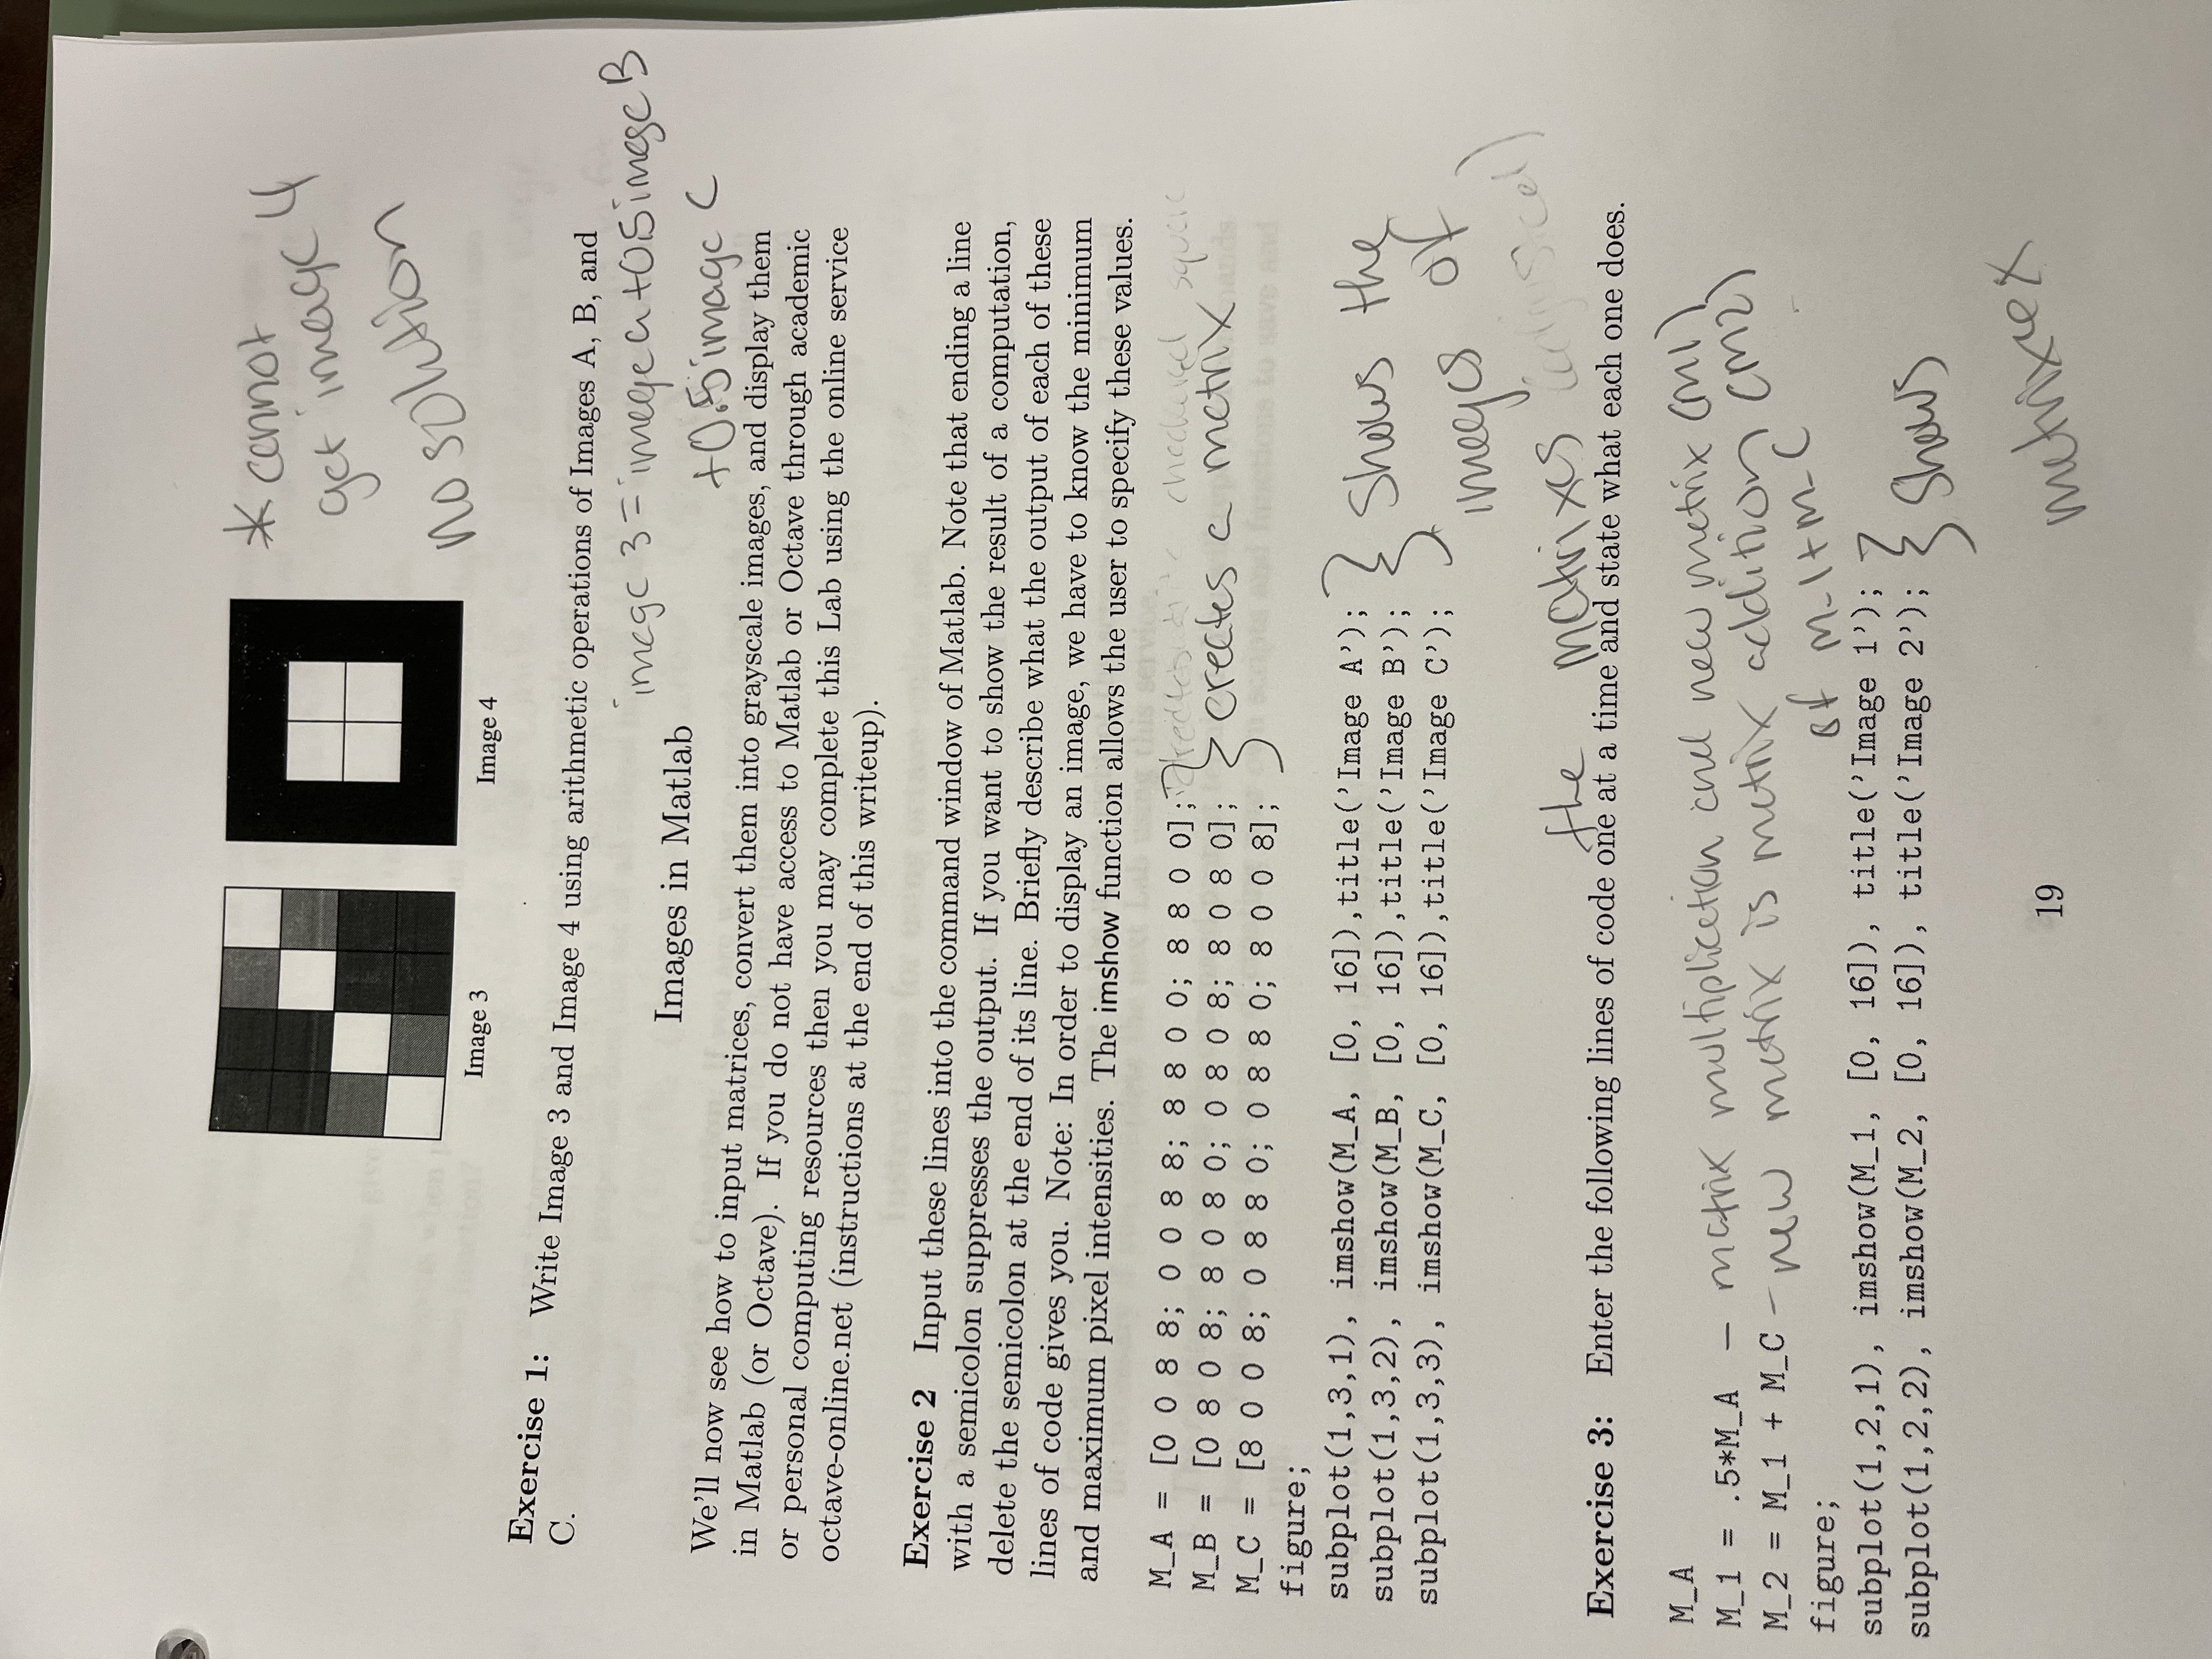 * cannot
get image 4
no solution
Image 3
Image 4
Exercise 1: Write Image 3 and Image 4 using arithmetic operations of Images A, B, and
C.
image 3 = image a +0.5 image B
+0.5 image C
Images in Matlab
We'll now see how to input matrices, convert them into grayscale images, and display them
in Matlab (or Octave). If you do not have access to Matlab or Octave through academic
or personal computing resources then you may complete this Lab using the online service
octave-online.net (instructions at the end of this writeup).
Exercise 2 Input these lines into the command window of Matlab. Note that ending a line
with a semicolon suppresses the output. If you want to show the result of a computation,
delete the semicolon at the end of its line. Briefly describe what the output of each of these
lines of code gives you. Note: In order to display an image, we have to know the minimum
and maximum pixel intensities. The imshow function allows the user to specify these values.
M_A = [0 0 8 8; 0 0 8 8; 8 8 0 0; 8 8 0 0]; checkered square
M_B = [0 8 0 8; 8 0 8 0; 0 8 0 8; 8 0 8 0]; creates a matrix
M_C = [8 0 0 8; 0 8 8 0; 0 8 8 0; 8 0 0 8];
figure;
subplot(1,3,1), imshow(M_A, [0, 16]),title('Image A');
subplot(1,3,2), imshow(M_B, [0, 16]),title('Image B');
subplot(1,3,3), imshow(M_C, [0, 16]),title('Image C');
Shows the
images of
the matrixes (adjusted)
Exercise 3: Enter the following lines of code one at a time and state what each one does.
M_A
M_1 = .5*M_A – matrix multiplication and new matrix (M1)
M_2 = M_1 + M_C – new matrix is matrix addition (M2)
of M-1+M-C
figure;
subplot(1,2,1), imshow(M_1, [0, 16]), title('Image 1');
subplot(1,2,2), imshow(M_2, [0, 16]), title('Image 2');
Shows
19